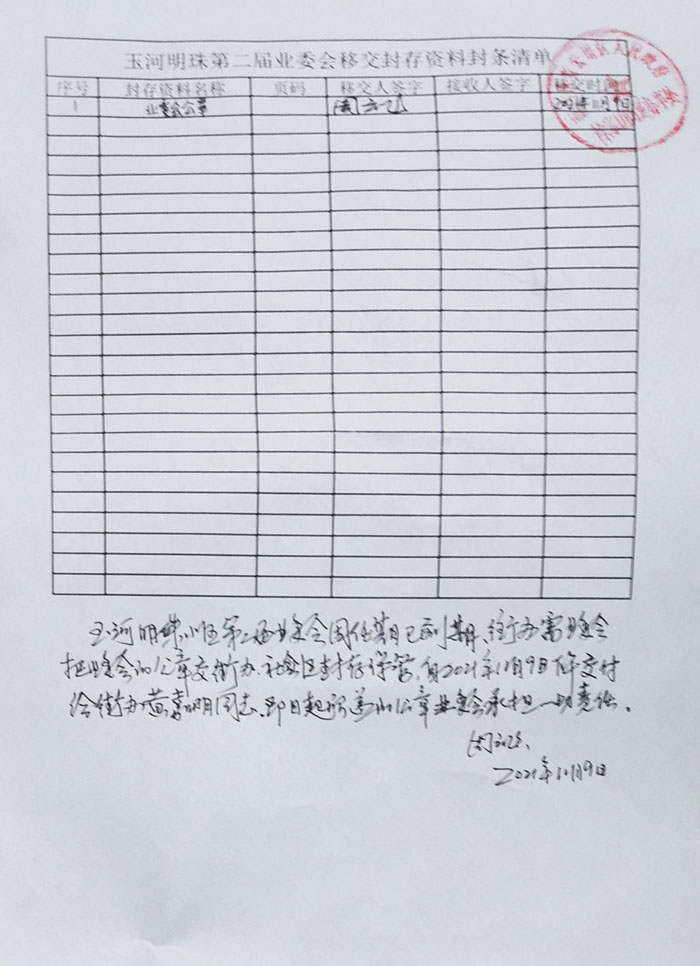 玉河明珠第二届业委会移交封存资料封条清单
序号 封存资料名称 页码 移交人签字 接收人签字 移交时间
1 业委会公章 2021年11月9日
玉河明珠小区第二届业委会因任期已到期,街办需业委会
把业委会的公章交街办、社区封存保管,自2021年11月9日下午交付
给街办黄 明同志,即日起所盖的公章业委会不承担一切责任。
2021年11月9日